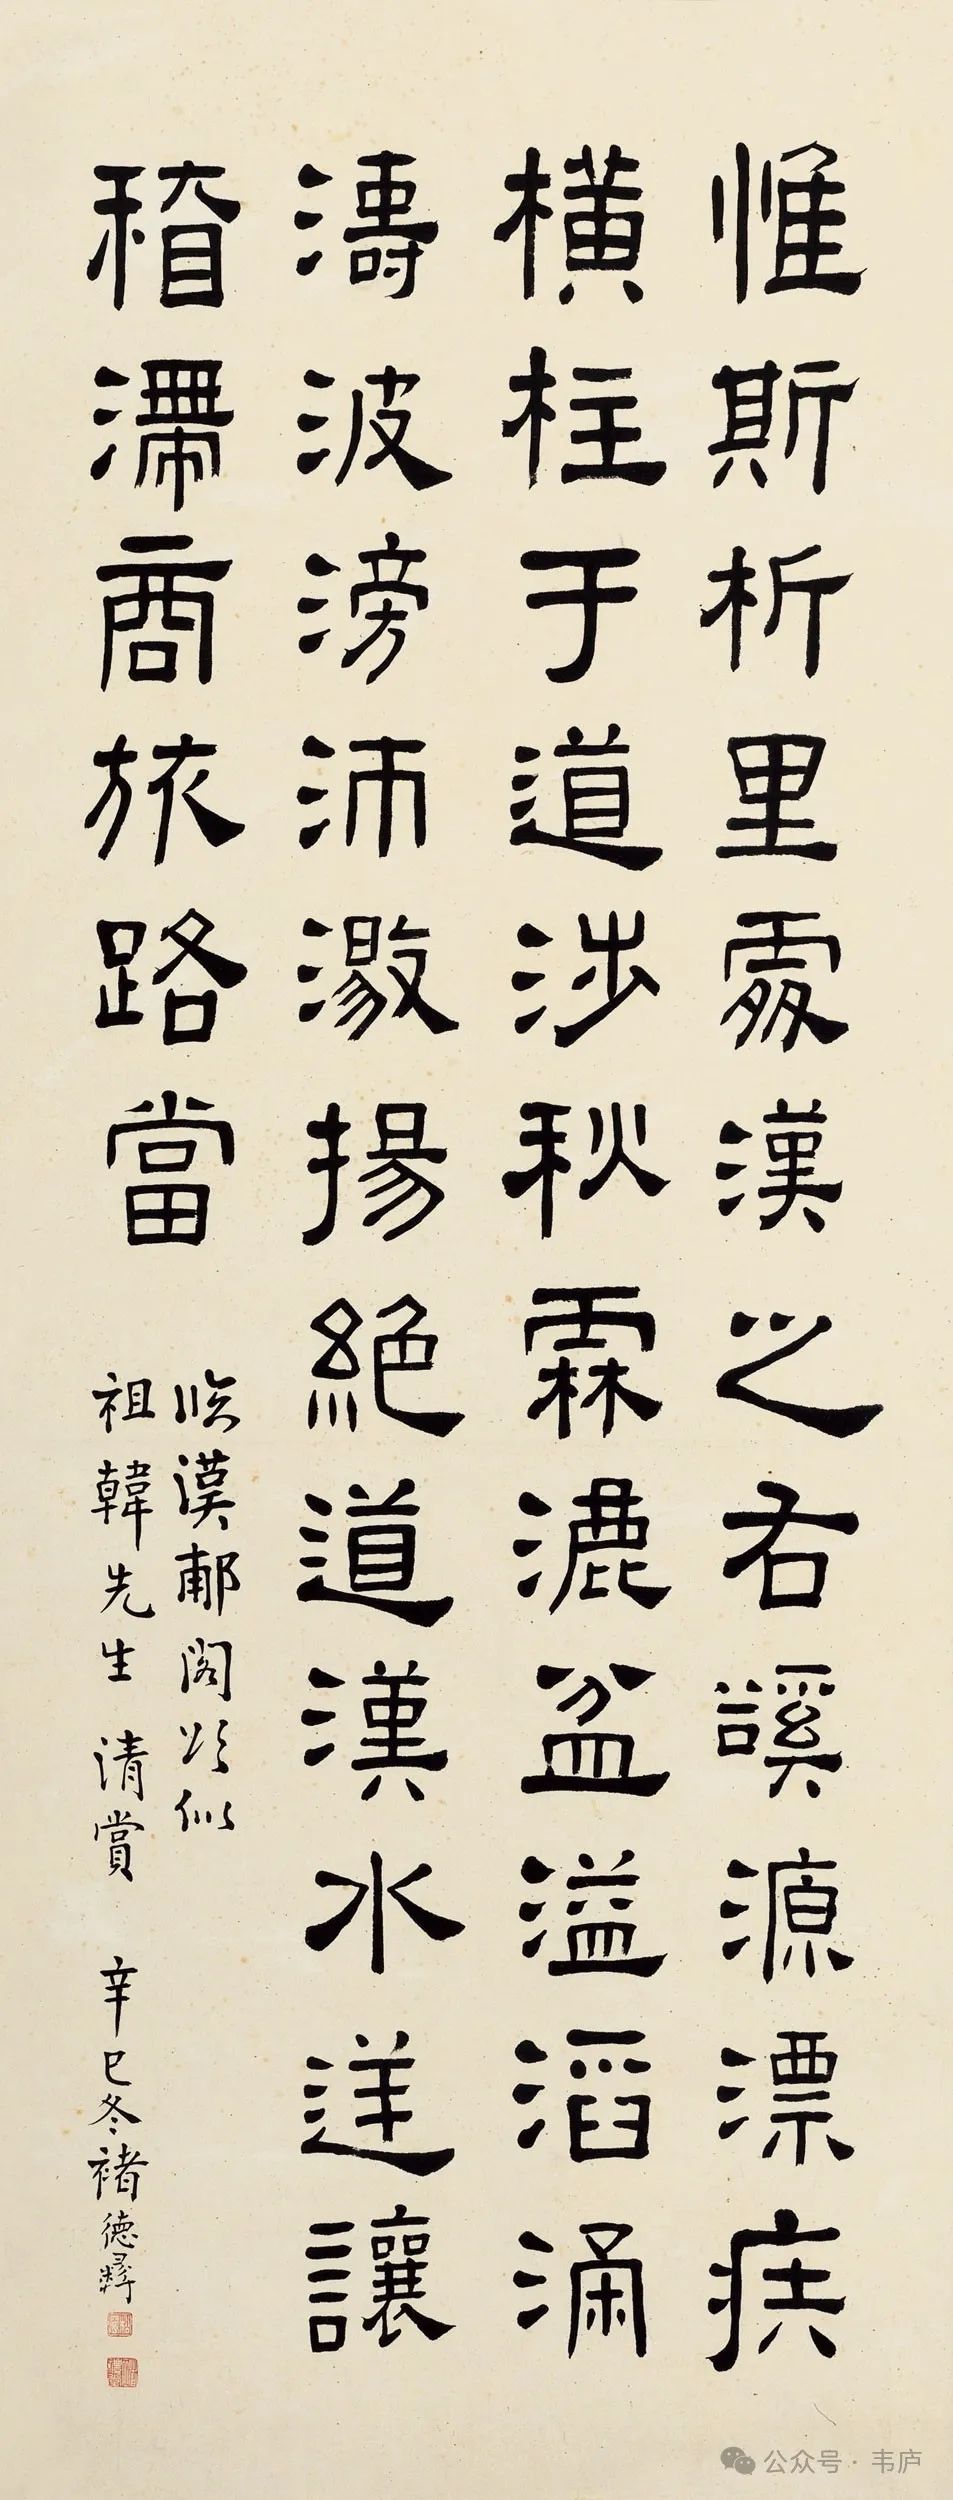 惟斯析里處漢之右谿源漂疾
橫柱于道涉秋霖漉盆溢滔涌
濤波滂沛激揚絕道漢水逆讓
稽滯商旅路當
临漢郙阁颂似
祖韓先生清賞
辛巳冬褚德彝
公众号·韦庐